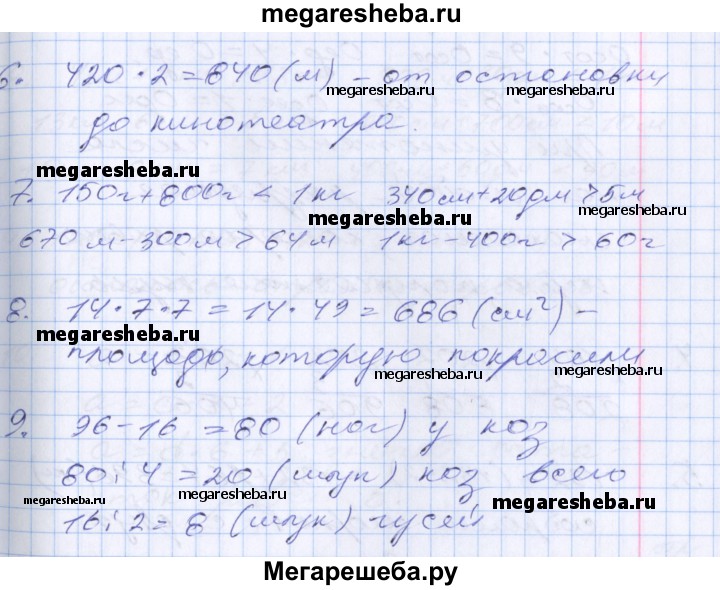 megaresheba.ru
6. 420 · 2 = 840 (м) - от остановки
megaresheba.ru megaresheba.ru
до кинотеатра.
megaresheba.ru
7. 150г + 800г < 1кг 340см + 20дм > 5м
megaresheba.ru megaresheba.ru
670м - 300м > 64м 1кг - 400г > 60г
8. 14 · 7 · 7 = 14 · 49 = 686 (см²) -
megaresheba.ru
площадь, которую покрасили
megaresheba.ru megaresheba.ru
9. 96 - 16 = 80 (ног) у коз
80 : 4 = 20 (штук) коз всего
megaresheba.ru megaresheba.ru megaresheba.ru
16 : 2 = 8 (штук) гусей
Мегарешеба.ру